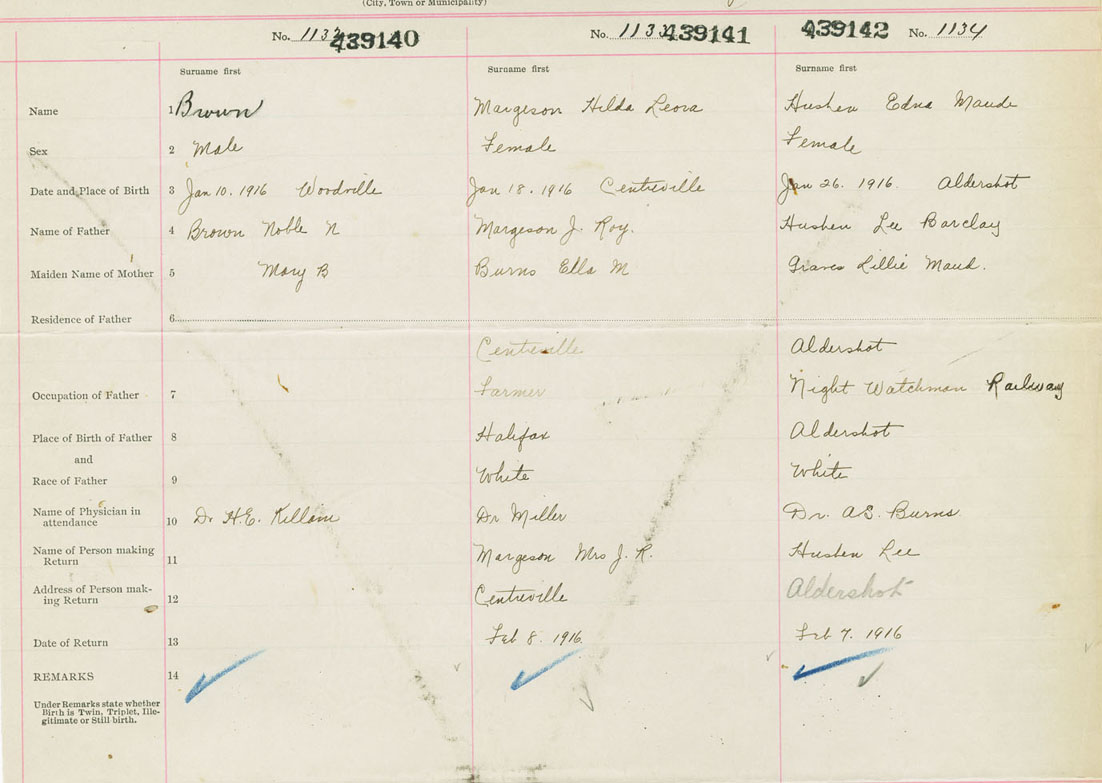 (City, Town or Municipality)
No. 1132 439140 No. 1133 439141 439142 No. 1134
Surname first Surname first Surname first
Name 1 Brown Margeson Hilda Leora Hushen Edna Maude
Sex 2 Male Female Female
Date and Place of Birth 3 Jan 10. 1916 Woodville Jan 18. 1916 Centreville Jan 26. 1916. Aldershot
Name of Father 4 Brown Noble N Margeson J. Roy. Hushen Lee Barclay
Maiden Name of Mother 5 Mary B Burns Ella M Graves Lillie Maud.
Residence of Father 6
Centreville Aldershot
Occupation of Father 7 Farmer Night Watchman Railway
Place of Birth of Father 8 Halifax Aldershot
and
Race of Father 9 White White
Name of Physician in
attendance 10 Dr H.E. Killam Dr Miller Dr. A.S. Burns
Name of Person making
Return 11 Margeson Mrs J. R. Hushen Lee
Address of Person mak-
ing Return 12 Centreville Aldershot
Date of Return 13 Feb 8. 1916. Feb 7. 1916
REMARKS 14
Under Remarks state whether
Birth is Twin, Triplet, Ille-
gitimate or Still birth.